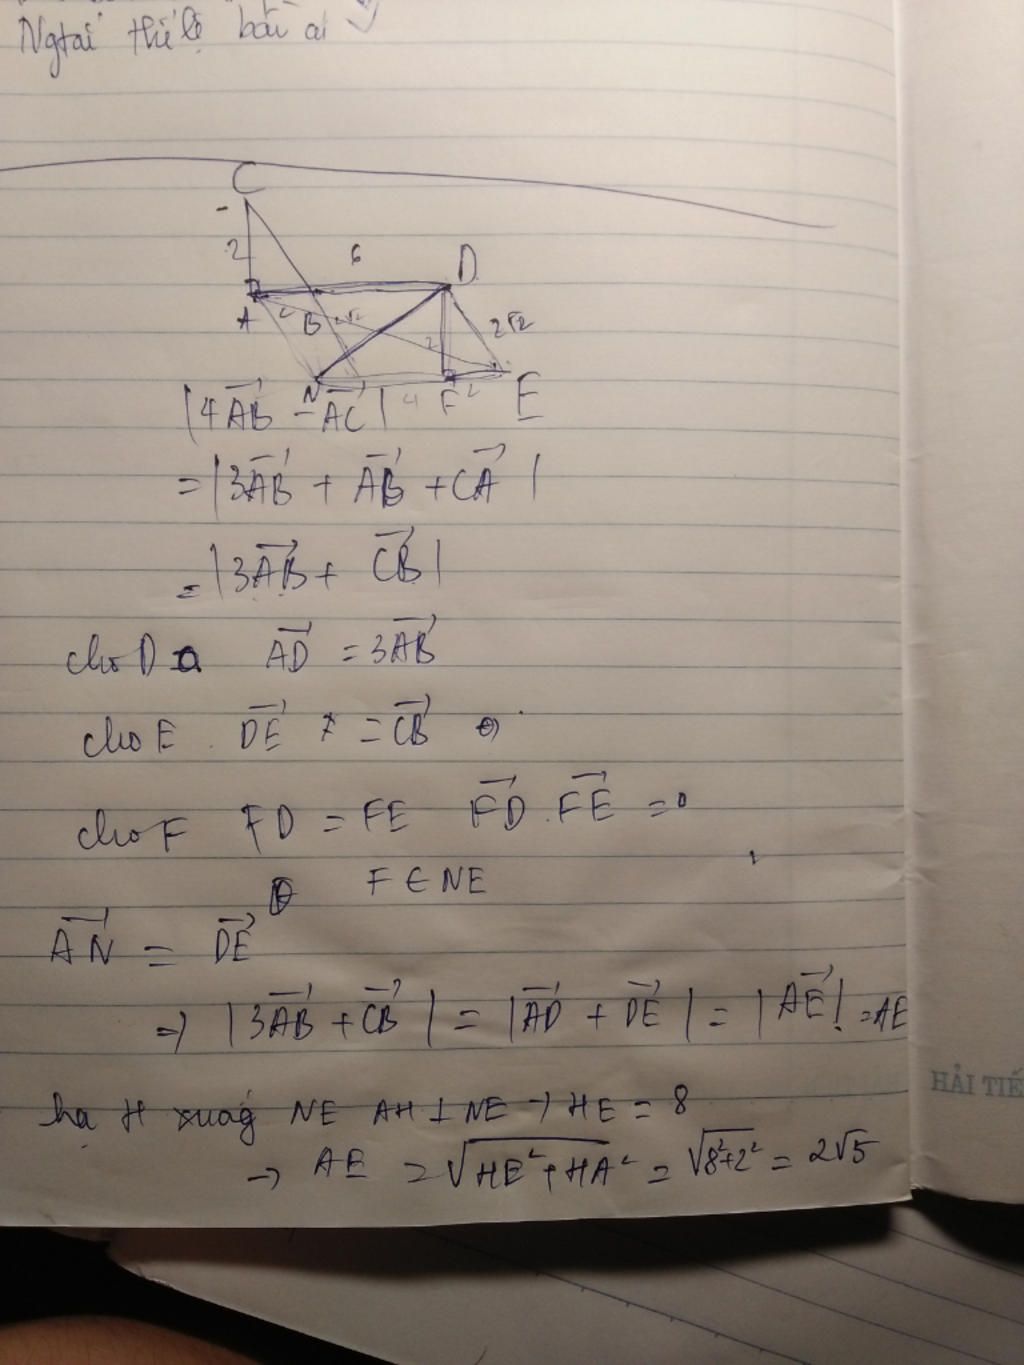 C
2
6
D
A
2
B
2√2
2
2√2
N
4
F
2
E
|4AB⃗ - AC⃗|
= |3AB⃗ + AB⃗ + CA⃗|
= |3AB⃗ + CB⃗|
cho D AD⃗ = 3AB⃗
cho E DE⃗ = CB⃗
cho F FD = FE FD⃗ . FE⃗ = 0
F ∈ NE
AN⃗ = DE⃗
=> |3AB⃗ + CB⃗| = |AD⃗ + DE⃗| = |AE⃗| = AE
hạ H xuốg NE AH ⊥ NE → HE = 8
→ AE = √HE² + HA² = √8²+2² = 2√5
HẢI TIẾ